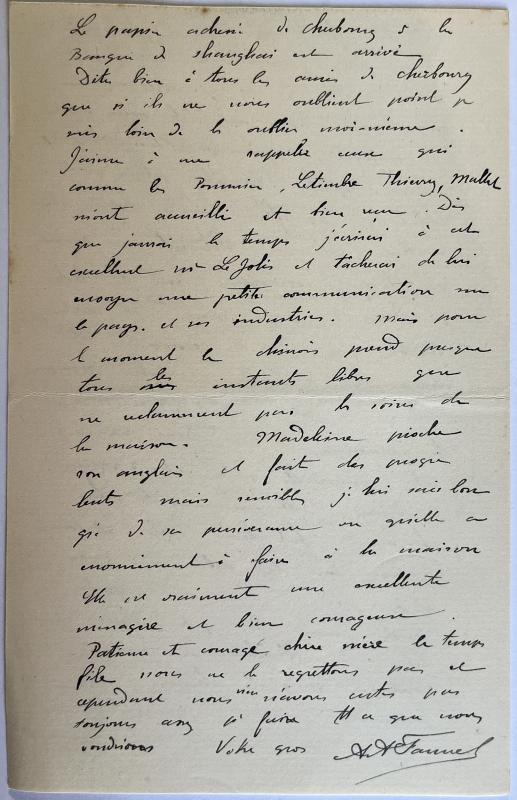 Le papier adressé de Cherbourg à la
Banque de Shanghai est arrivé
Dites bien à tous les amis de Cherbourg
que si ils ne nous oublient point je
suis loin de les oublier moi-même.
J'aime à me rappeler ceux qui
comme les Pommier, Letimbre Thierry, Mallet
m'ont accueilli et bien reçu. Dès
que j'aurai le temps j'écrirai à cet
excellent Mr Le Jolis et tâcherai de lui
envoyer une petite communication sur
le pays et ses industries. Mais pour
l moment le chinois prend presque
tous les instants libres que
ne réclament pas les soins de
la maison. Madeleine pioche
son anglais et fait des progrès
lents mais sensibles je lui sais bon
gré de sa persévérance vu qu'elle a
énormément à faire à la maison
Elle est vraiment une excellente
ménagère et bien courageuse.
Patience et courage chère mère le temps
file nous ne le regrettons pas et
cependant nous n'avons certes pas
toujours assez pu faire tt ce que nous
voudrions Votre gros A. A. Fauvel